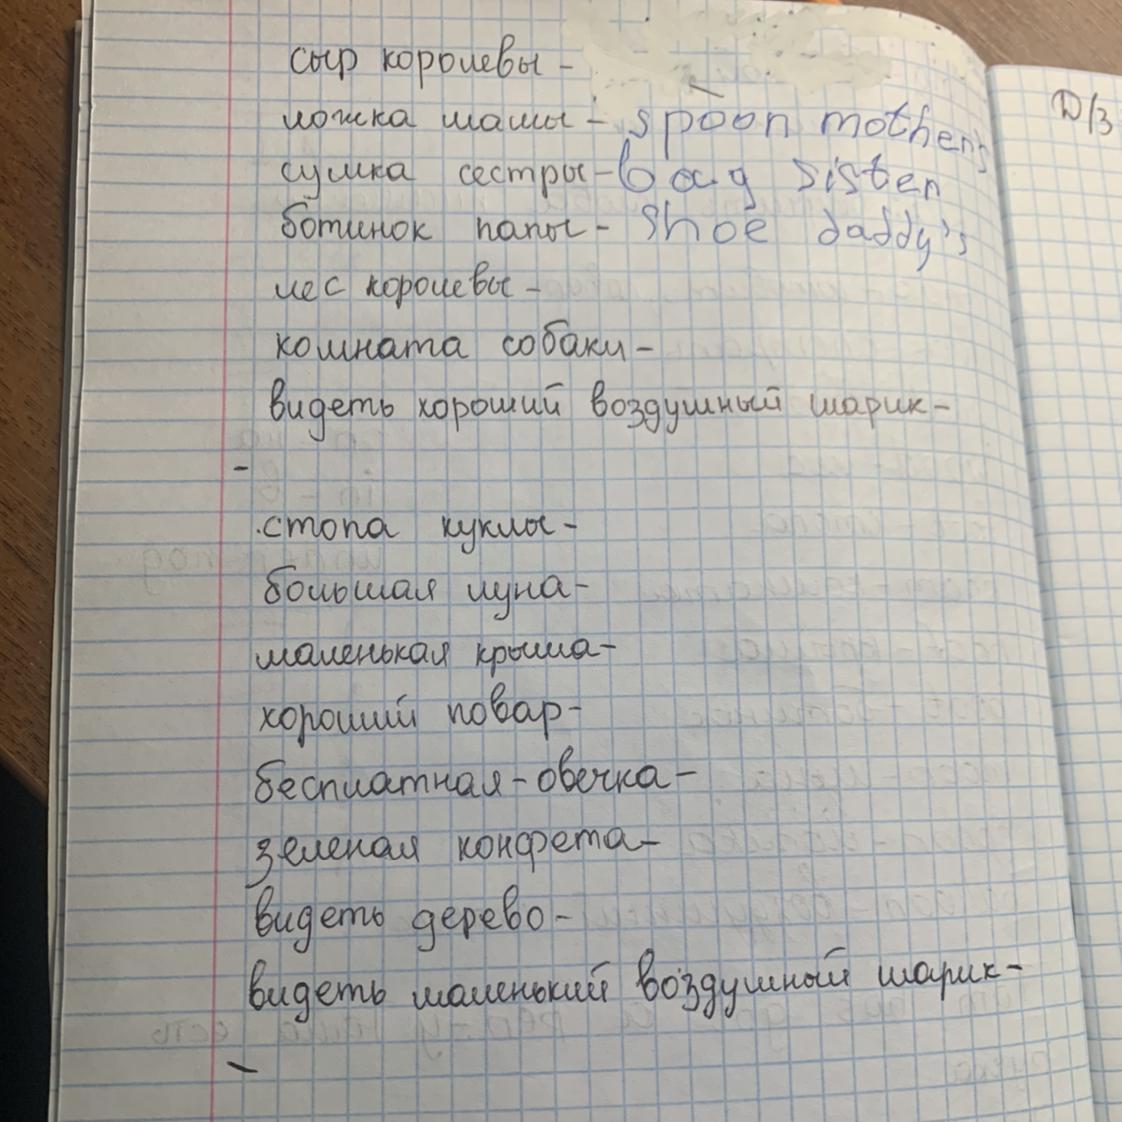 сыр королевы -
ложка мамы - spoon mother's
сумка сестры - bag sister
ботинок папы - shoe daddy's
лес королевы -
комната собаки -
видеть хороший воздушный шарик -
-
стопа куклы -
большая луна -
маленькая крыша -
хороший повар -
бесплатная - овечка -
зеленая конфета -
видеть дерево -
видеть маленький воздушный шарик -
-
D/З